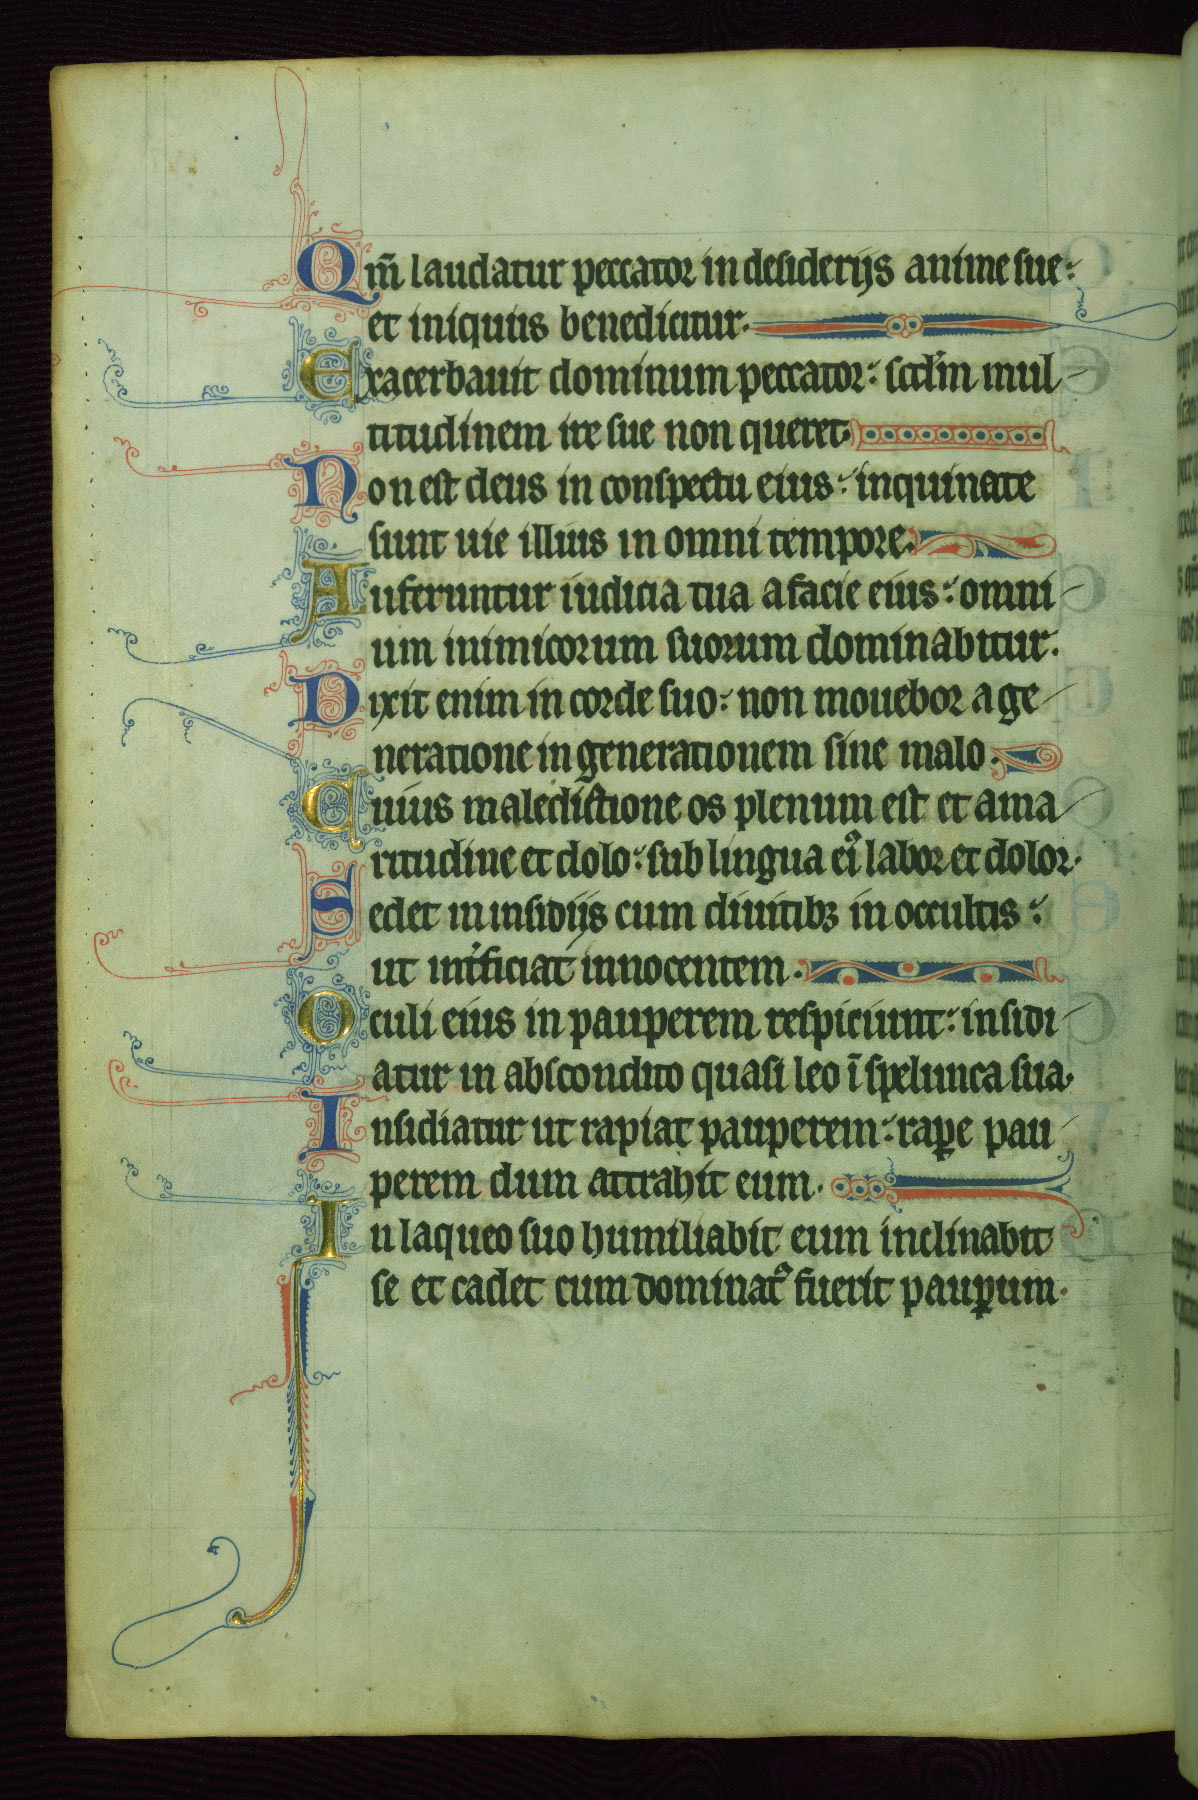 Qm̄ laudatur peccator in desiderijs anime sue:
et iniquus benedicitur.
Exacerbauit dominum peccator: scđm mul
titudinem ire sue non queret.
Non est deus in conspectu eius: inquinate
sunt uie illius in omni tempore.
Auferuntur iudicia tua a facie eius: omni
um inimicorum suorum dominabitur.
Dixit enim in corde suo: non mouebor a ge
neratione in generationem sine malo.
Cuius maledictione os plenum est et ama
ritudine et dolo: sub lingua ei᾿ labor et dolor.
Sedet in insidijs cum diuitibꝫ in occultis:
ut int̓ficiat innocentem.
Oculi eius in pauperem respiciunt: insidi
atur in abscondito quasi leo ī spelunca sua.
Insidiatur ut rapiat pauperem: raꝑe pau
perem dum attrahit eum.
In laqueo suo humiliabit eum inclinabit
se et cadet cum dominatꝰ fuerit pauꝑum.